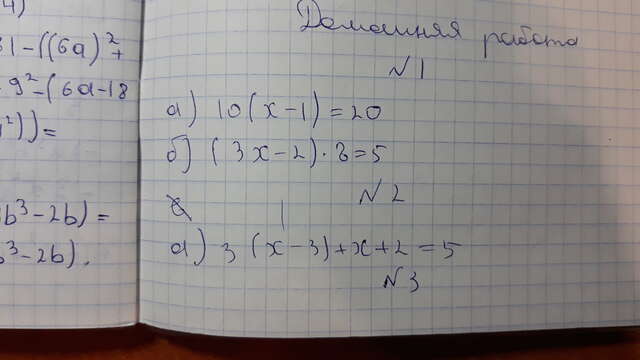 4)
81-((6a)²+
9²-(6a-18
²))=
b³-2b)=
b³-2b).
Домашняя работа
№1
а) 10(x-1)=20
б) (3x-2)·8=5
№2
а) 3(x-3)+x+2=5
№3